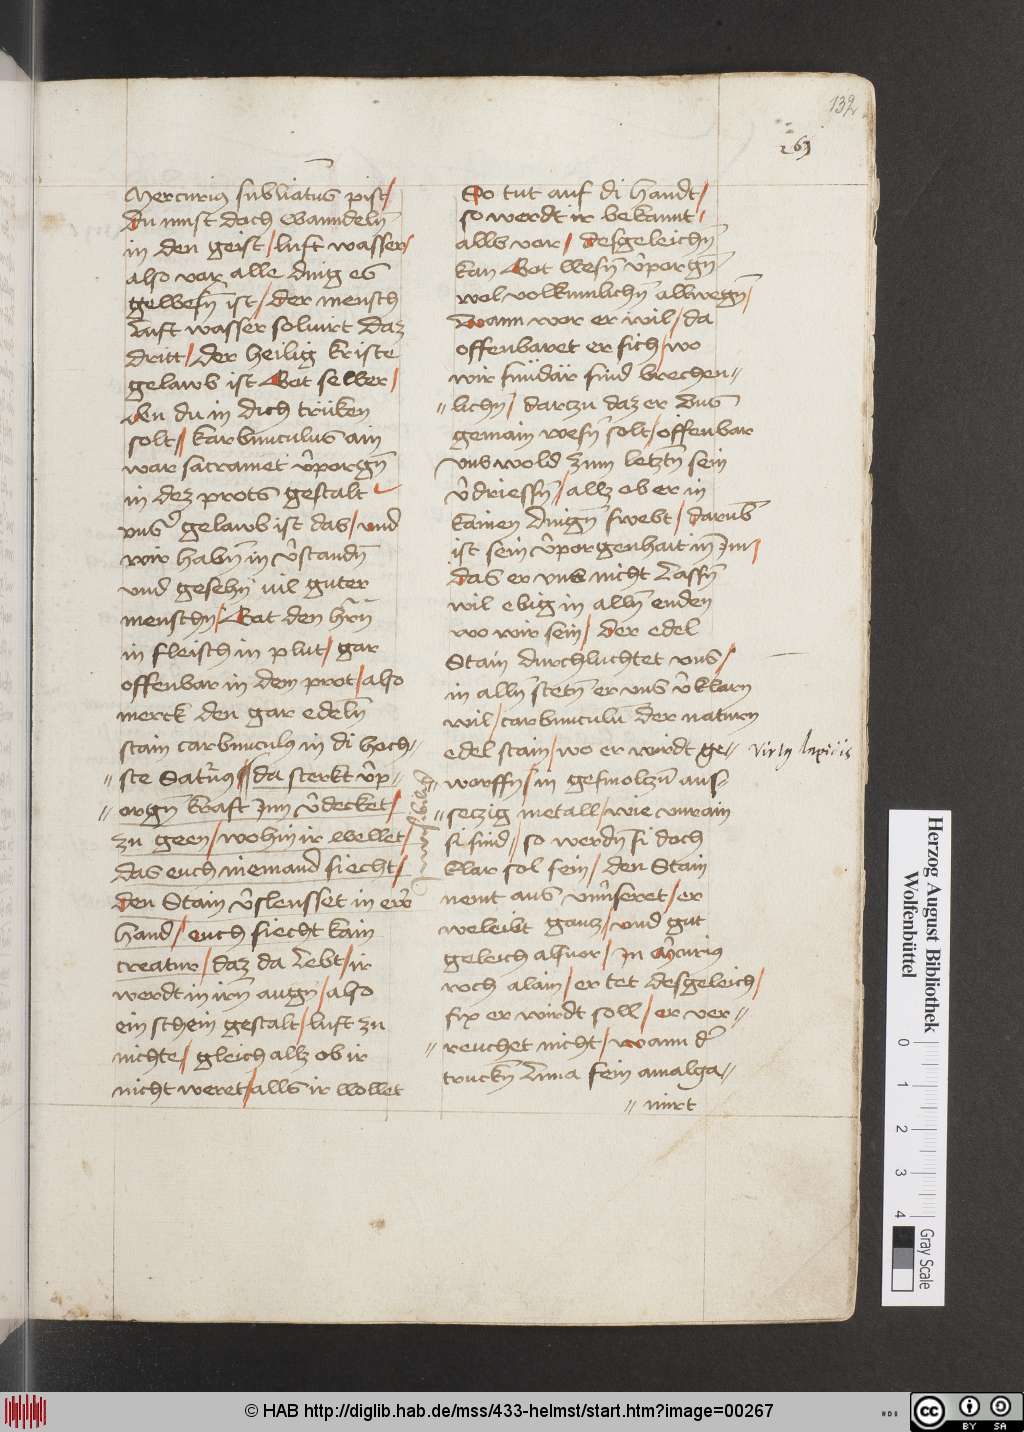 132
263
Mercurius subliātus pist/
du must doch wanndelñ
in den geist / luft wasser/
also vor alle ding es
gewesñ ist / der mensch
Luft wasser soluirt daz
dritt / der heilig kriste
gelawb ist Got selber /
den du in dich trüken
solt / karbunculus ain
war sacramēt v̄porgñ
in dez prots gestalt
vnsᵉ gelawb ist das / und
wir habñ in v̄standñ
vnd gesehñ uil guter
menschñ / Got den hr̄n
in fleisch in plut / gar
offenbar in dem prot / also
merck den gar edelñ
stain carbunculus in di hoch-
ste Satūꝰ / da sterkt v̄p-
orgñ kraft Jnn v̄decket /
zu geen / wohin ir wellet /
das euch niemand siecht /
den Stain v̄slensset in ewr̄
hand / euch siecht kain
creatur / daz da Lebt / ir
werdt in irñ augñ / also
ein schein gestalt / luft zu
nichte / gleich allz ob ir
nicht weret / alls ir wollet
So tut auf di handt /
so werdt ir bekannt /
alls vor / desgeleichñ
kan Got wesñ v̄porgñ
wol volkumlichñ allwegñ /
Wann wor er wil / da
offenbaret er sich / wo
wir sündär sind brechen-
lichñ / darzu daz er vns
gemain wesñ solt / offenbar
vns wold zum letztñ sein
v̄driessñ / allz ob er in
kainen dingñ swebt / darub̄
ist sein v̄porgenhait in Jm /
das er vns nicht Lassñ
wil ebig in allñ enden
wo wir sein / der edel
Stain durchluchtet vns /
in allñ stetñ er vns v̄klarn
wil / carbunculū der naturn
edel stain / wo er wirdt ge-
worffñ / in gesmolczñ aus-
seczig metall / wie vnrain
si sind / so werdñ si doch
klar sol sein / den Stain
nemt aus vnuerseret / er
weleibt gancz / vnd gut
geleich alsuor / Jn Mercurius
noch alain / er tet desgeleich /
fix er wirdt soll / er ver-
reuchet nicht / wann dᵉ
truckñ Luna sein amalga-
mirt
Virtus lapidis
Herzog August Bibliothek
Wolfenbüttel
0
1
2
3
4
Gray Scale
© HAB http://diglib.hab.de/mss/433-helmst/start.htm?image=00267
HAB
cc
BY
SA